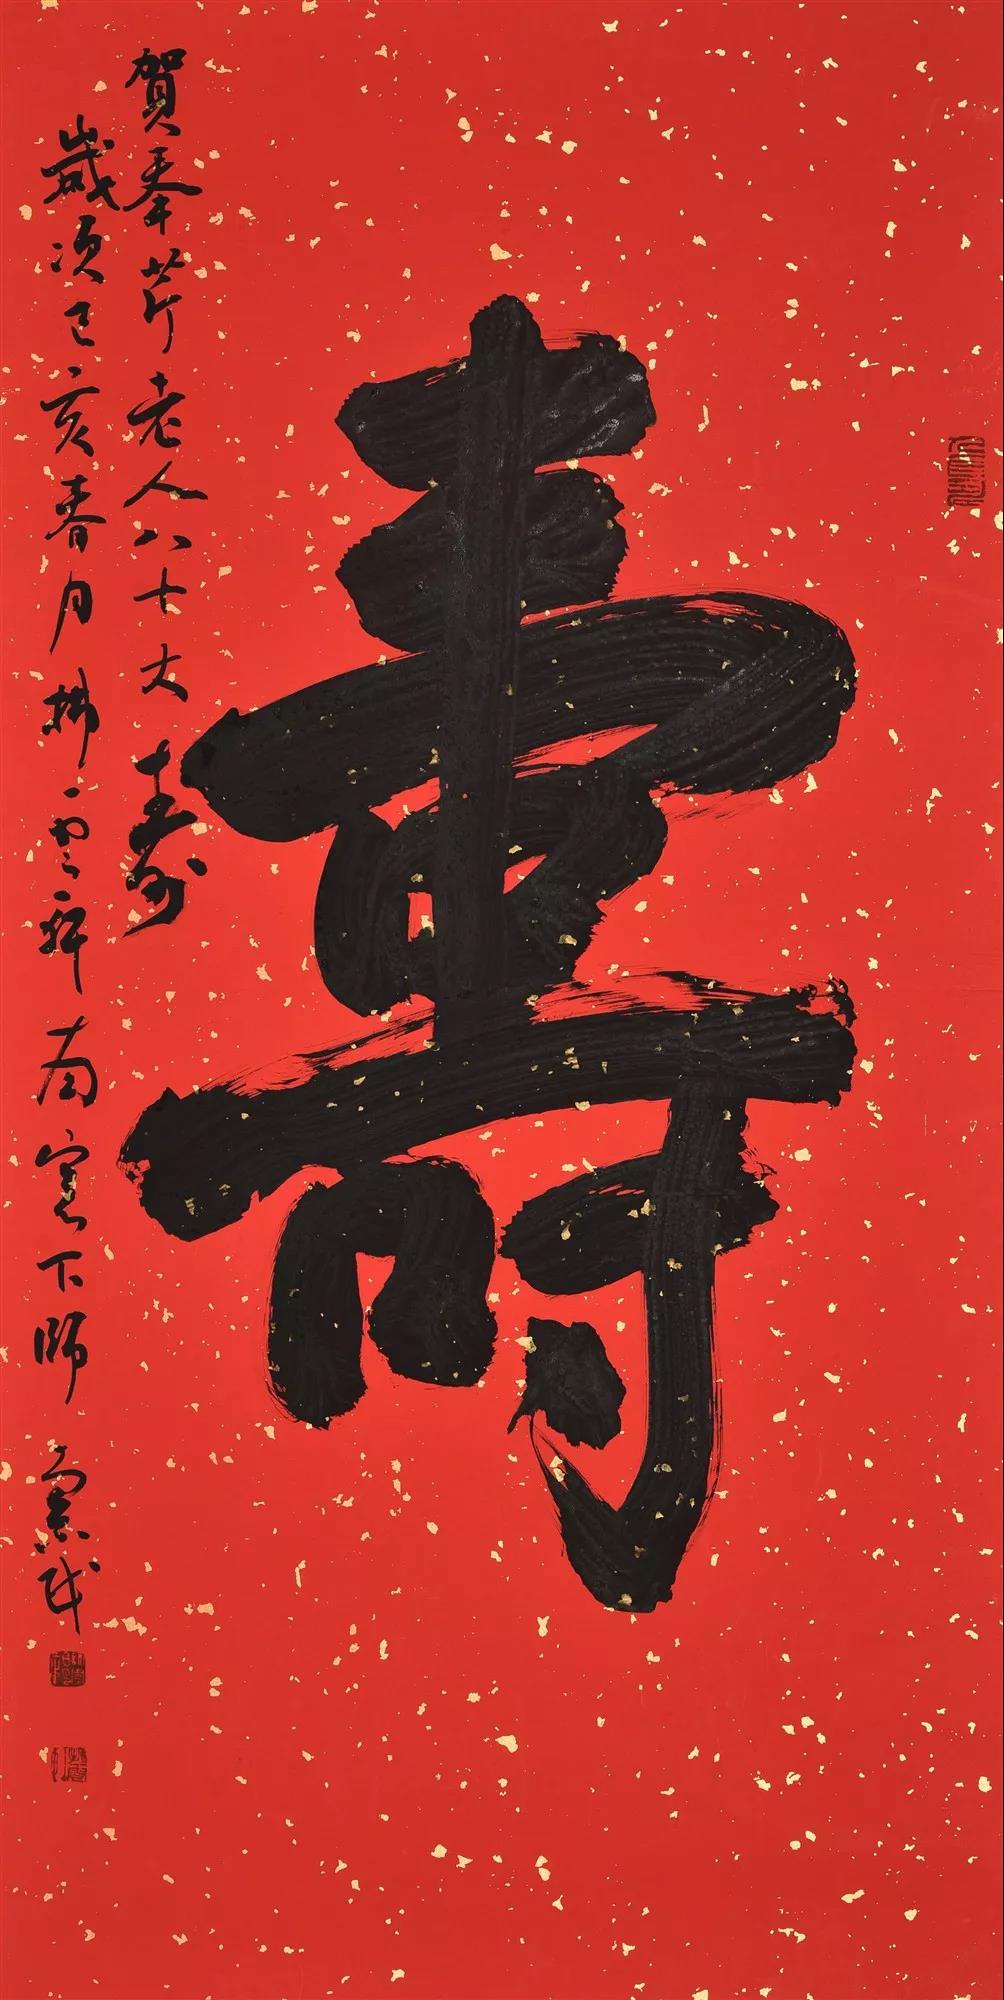 壽
賀奉芹老人八十大壽
歲次己亥春月拂雲軒南窗下師景武